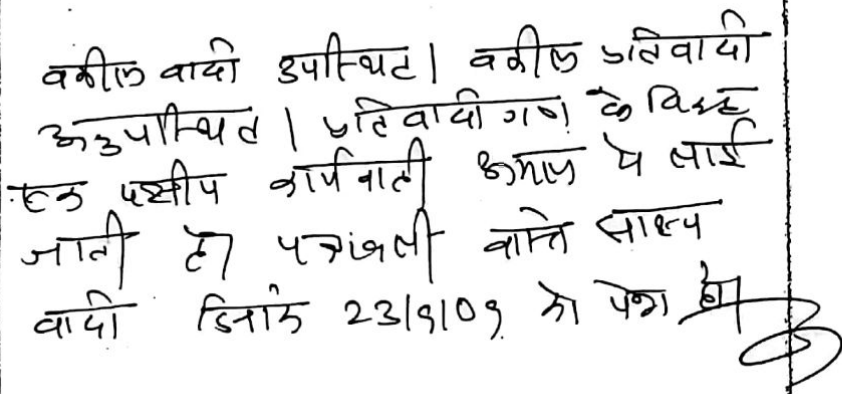 वकील वादी उपस्थित। वकील प्रतिवादी
अनुपस्थित। प्रतिवादी गण के विरूद्ध
एक पक्षीय कार्यवाही अमल मे लाई
जाती है। पत्रावली वास्ते साक्ष्य
वादी दिनांक 23/9/09 को पेश हो।